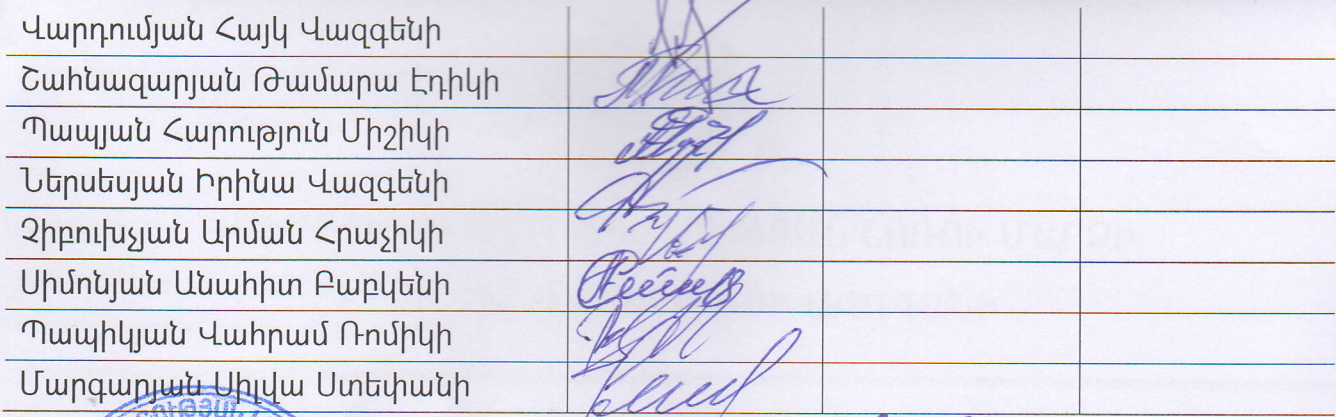 Վարդումյան Հայկ Վազգենի
Շահնազարյան Թամարա Էդիկի
Պապյան Հարություն Միշիկի
Ներսեսյան Իրինա Վազգենի
Չիբուխչյան Արման Հրաչիկի
Սիմոնյան Անահիտ Բաբկենի
Պապիկյան Վահրամ Ռոմիկի
Մարգարյան Սիլվա Ստեփանի